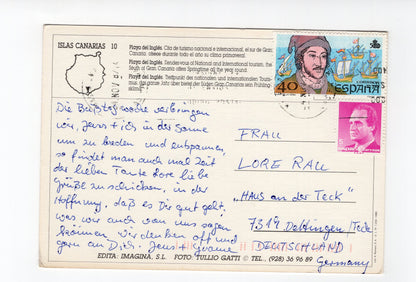 ISLAS CANARIAS 10
Playa del Inglés. Cita de turismo nacional e internacional, el sur de Gran
Canaria, ofrece durante todo el año su clima primaveral.
Playa del Inglés. Rendez-vous of National and International tourism, the
South of Gran Canaria offers Springtime all the year round.
Playa del Inglés. Treffpunkt des nationalen und internationalen Touris-
mus, der Süden Gran Canarias bietet das ganze Jahr seinen Frühling
40
ESPAÑA
ESPAÑA
Die Bußtagswoche verbringen
wir, Jens + ich in der Sonne
um zu baden und entspannen,
so findet man auch mal Zeit
der lieben Tante Lore liebe
Grüße zu schicken, in der
Hoffnung, daß es Dir gut geht,
was wir auch von uns sagen
können. Wir denken oft und
gern an Dich. Jens +
FRAU
LORE RAU
"HAUS an der TECK"
7319 Dettingen/Teck
DEUTSCHLAND
Germany
EDITA: IMAGINA, S.L. FOTO: TULLIO GATTI © TEL., (928) 36 96 89